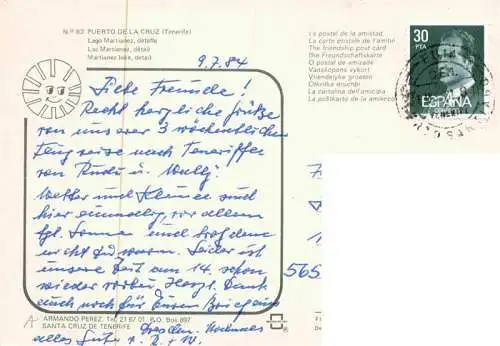 N.º 63 PUERTO DE LA CRUZ (Tenerife)
Lago Martianez, detalle
Lac Martianez, détail
Martianez lake, detail
La postal de la amistad
La carte postale de l'amitié
The friendship post card
Die Freundschaftskarte
O postal de amizade
Vänskapens vykort
Vriendelijke groeten
La cartolina dell'amicizia
30
PTA
ESPAÑA
9.7.84
Liebe Freunde!
Recht herzliche Grüße
von unserer 3 wöchentlichen
Flugreise nach Teneriffa
von Rudi u. Wally.
Wetter und Klima sind
hier einmalig, vor allem
tgl. Sonne und trotzdem
nicht zu warm. Leider ist
unsere Zeit am 14. schon
wieder vorbei. Herzl. Dank
auch noch für Euren Brief aus
Dresden. Nochmals
alles Gute
565
ARMANDO PEREZ. Tel. 21 67 01 - P.O. Box 897
SANTA CRUZ DE TENERIFE